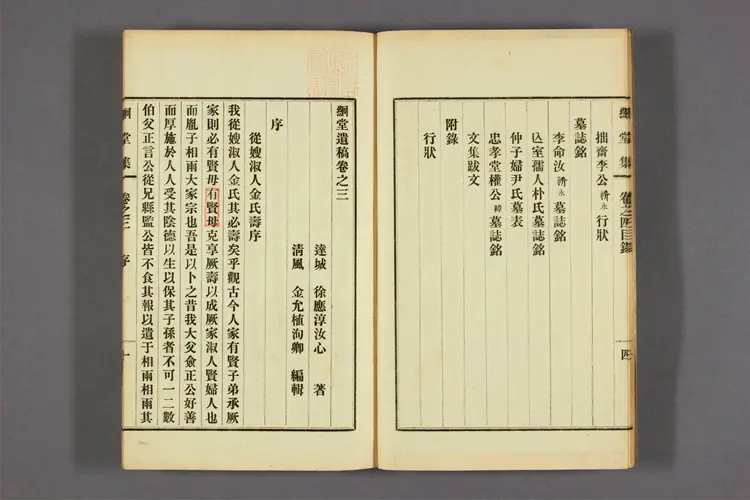 絅堂集 卷之四目錄 四
拙齋李公 永 行狀
墓誌銘
李命汝 永 墓誌銘
亡室孺人朴氏墓誌銘
仲子婦尹氏墓表
忠孝堂權公 墓誌銘
文集跋文
附錄
行狀
絅堂遺稿卷之三
達城 徐應淳汝心 著
清風 金允植洵卿 編輯
序
從嫂淑人金氏壽序
我從嫂淑人金氏其必壽矣乎觀古今人家有賢子弟承厥
家則必有賢毋有賢母克享厥壽以成厥家淑人賢婦人也
而胤子相雨大家宗也吾是以卜之昔我大父僉正公好善
而厚施於人人受其陰德以生以保其子孫者不可一二數
伯父正言公從兄縣監公皆不食其報以遺于相雨相雨其
絅堂集 卷之三 序 一